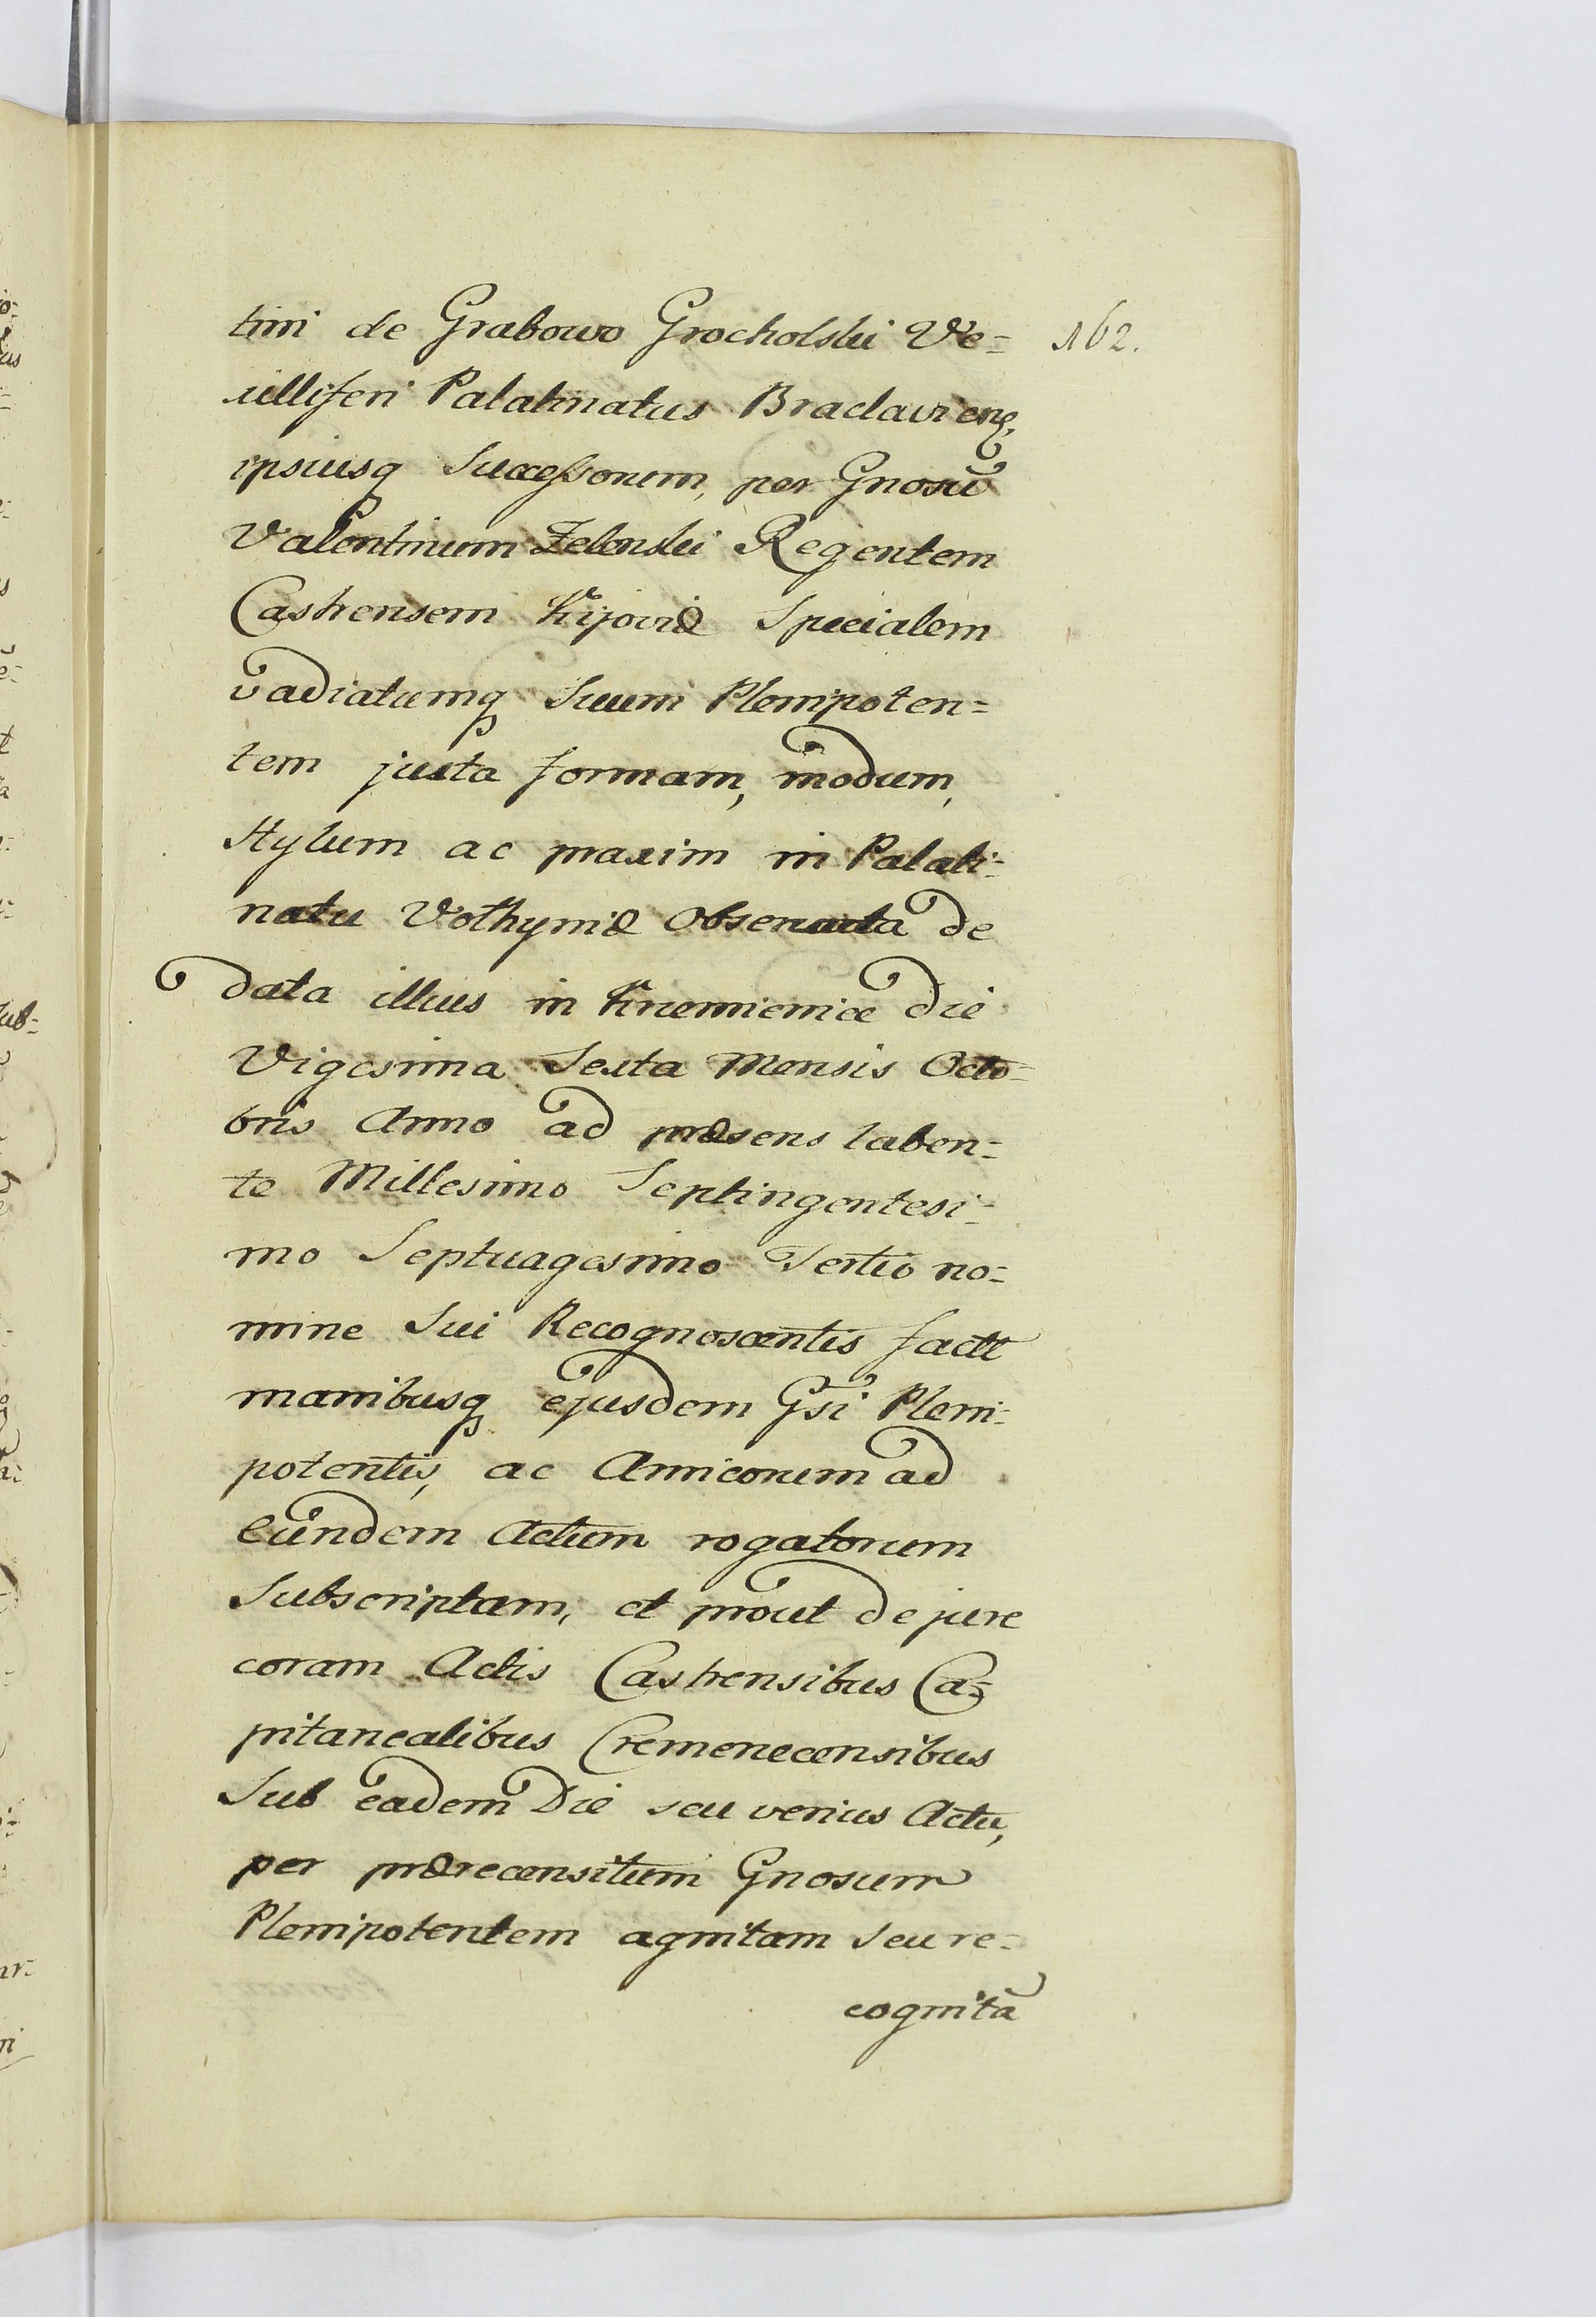 tini de Grabowo Grocholski Ve= 162.
xilliferi Palatinatus Braclavieñ,
ipsiusq Successorum, per Gnosū
Valentinum Zelenski Regentem
Castrensem Kijoviæ Specialem
vadiatumq Suum Plenipoten=
tem juxta formam, modum,
Stylum ac praxim in Palati=
natu Volhyniæ Observata de
data illius in Krzemienice die
Vigesima Sexta Mensis Octo=
bris Anno ad præsens laben=
te Millesimo Septingentesi=
mo Septuagesimo Tertio no=
mine Sui Recognoscentis factē
manibusq ejusdem Gsi Pleni=
potentis, ac Amicorum ad
eundem Actum rogatorum
Subscriptam, et prout de jure
coram Actis Castrensibus Ca=
pitanealibus Cremenecensibus
Sub eadem Die seu verius Actu,
per prærecensitum Gnosum
Plenipotentem agnitam seu re=
cognitā